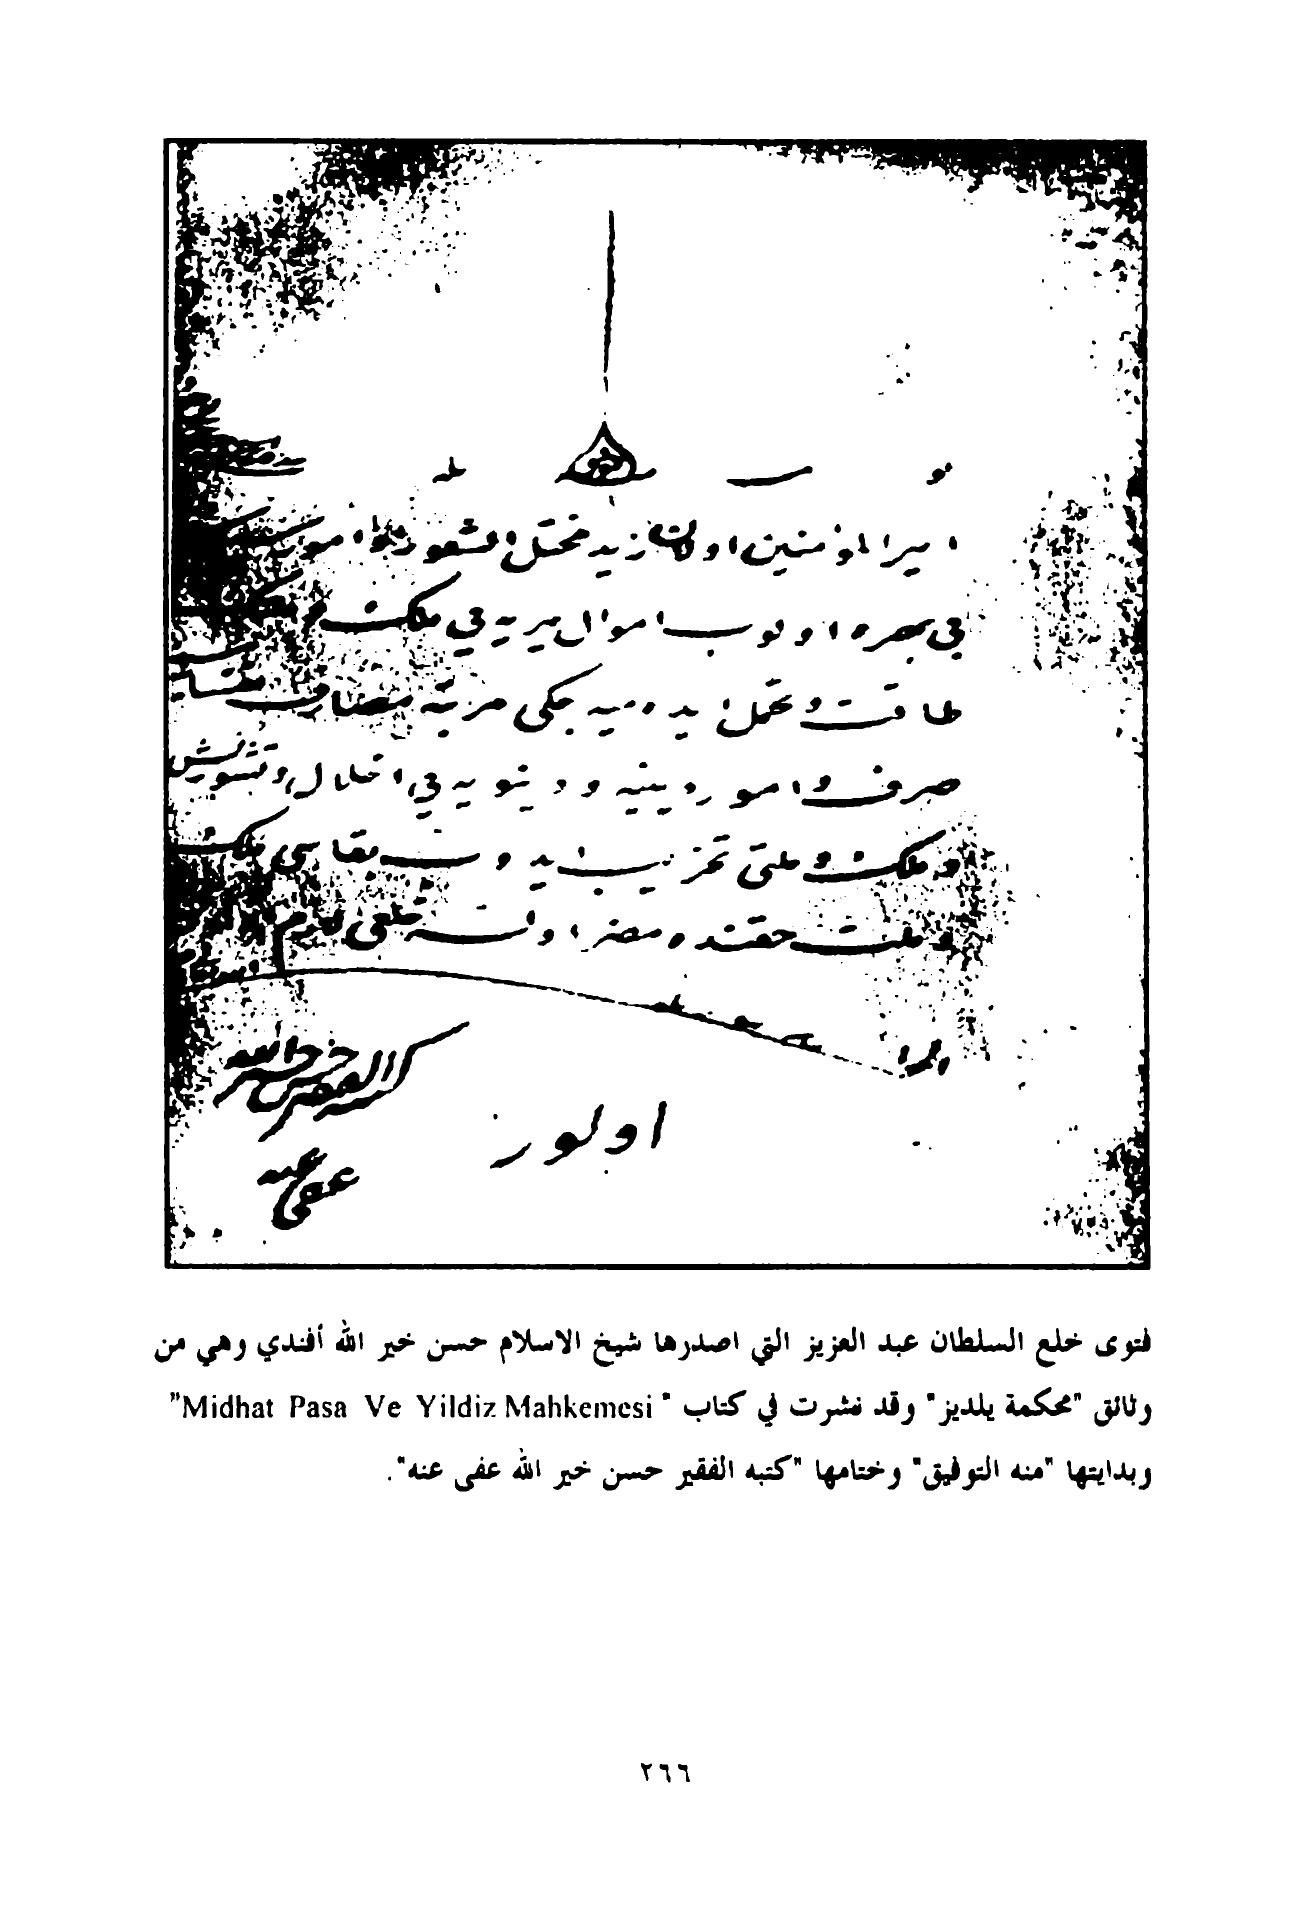 امير المؤمنين اولان زيد مختل الشعور و امور
بى بهره اولوب اموال ميريه يى ملك و
طاقت و تحمل ايده ميه جكى مرتبه مصارف
صرف و امور دينيه و دنيويه يى اخلال و تشويش
و ملك و ملتى تخريب ايدوب بقاسى ملك
و ملت حقنده مضر اولسه خلعى لازم
الجواب
اولور
كتبه الفقير حسن خير الله
عفى عنه
فتوى خلع السلطان عبد العزيز التي اصدرها شيخ الاسلام حسن خير الله أفندي وهي من
وثائق "محكمة يلديز" وقد نشرت في كتاب "Midhat Pasa Ve Yildiz Mahkemesi"
وبدايتها "منه التوفيق" وختامها "كتبه الفقير حسن خير الله عفى عنه".
٢٦٦